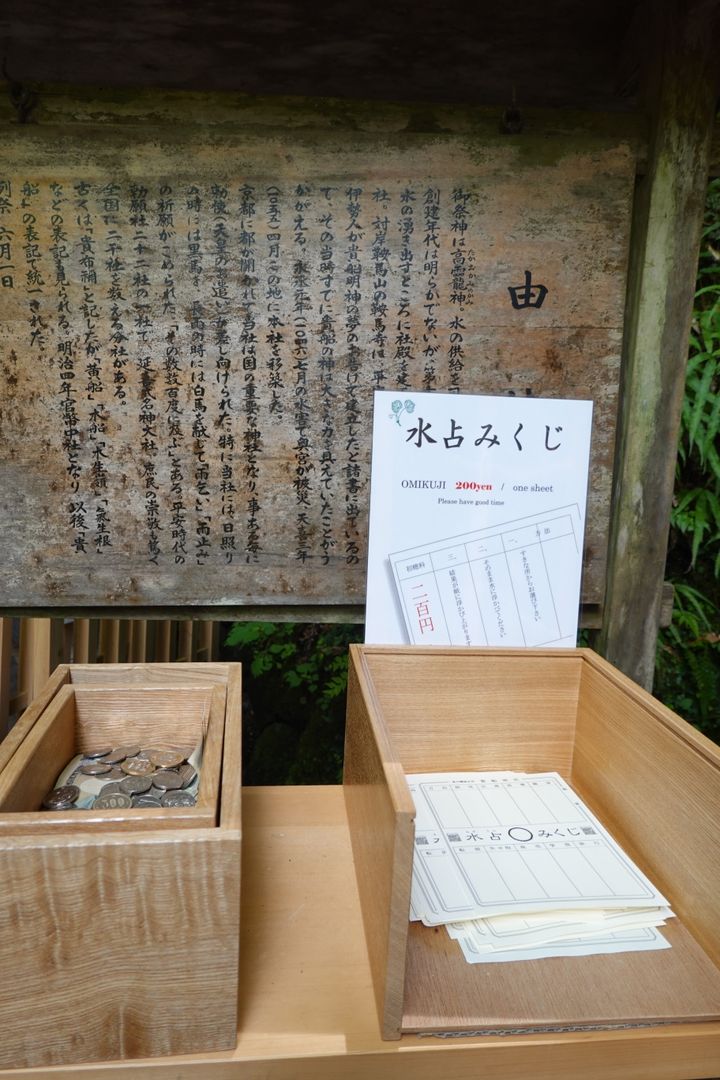 由
御祭神は高龗龍神。水の供給を
たかおかみかみ
創建年代は明らかでないが
水の湧き出すところに社殿を
社。対岸鞍馬山の鞍馬寺は
伊勢人が貴船明神の夢のお告げで建立したと諸書に出ているの
で、その当時すでに貴船の神は大きな力を具えていたことがう
かがえる。永承元年(一〇四六)七月の水害で奥宮が被災、天喜三年
(一〇五五)四月この地に本社を移築した。
京都に都が開かれて当社は国の重要な神社となり、事ある毎に
勅使(天皇のお遣い)が差し向けられた。特に当社には、日照り
の時には黒馬を、長雨の時には白馬を献じて「雨乞い」「雨止み」
の祈願がこめられた。「その数数百度に及ぶ」とある。平安時代の
勅願社二十二社の一社で、延喜式名神大社。庶民の崇敬も篤く
全国に二千社を数える分社がある。
古くは「貴布禰」と記したが「黄船」「木船」「木生嶺」「気生根」
などの表記も見られる。明治四年官幣中社となり、以後「貴
船」の表記で統一された。
例祭 六月一日
水占みくじ
OMIKUJI 200yen / one sheet
Please have good time
方法
一、すきな所からお選び下さい
二、そのまま水に浮かべてください
三、結果が紙に浮かび上がります
初穂料
二百円
水占みくじ